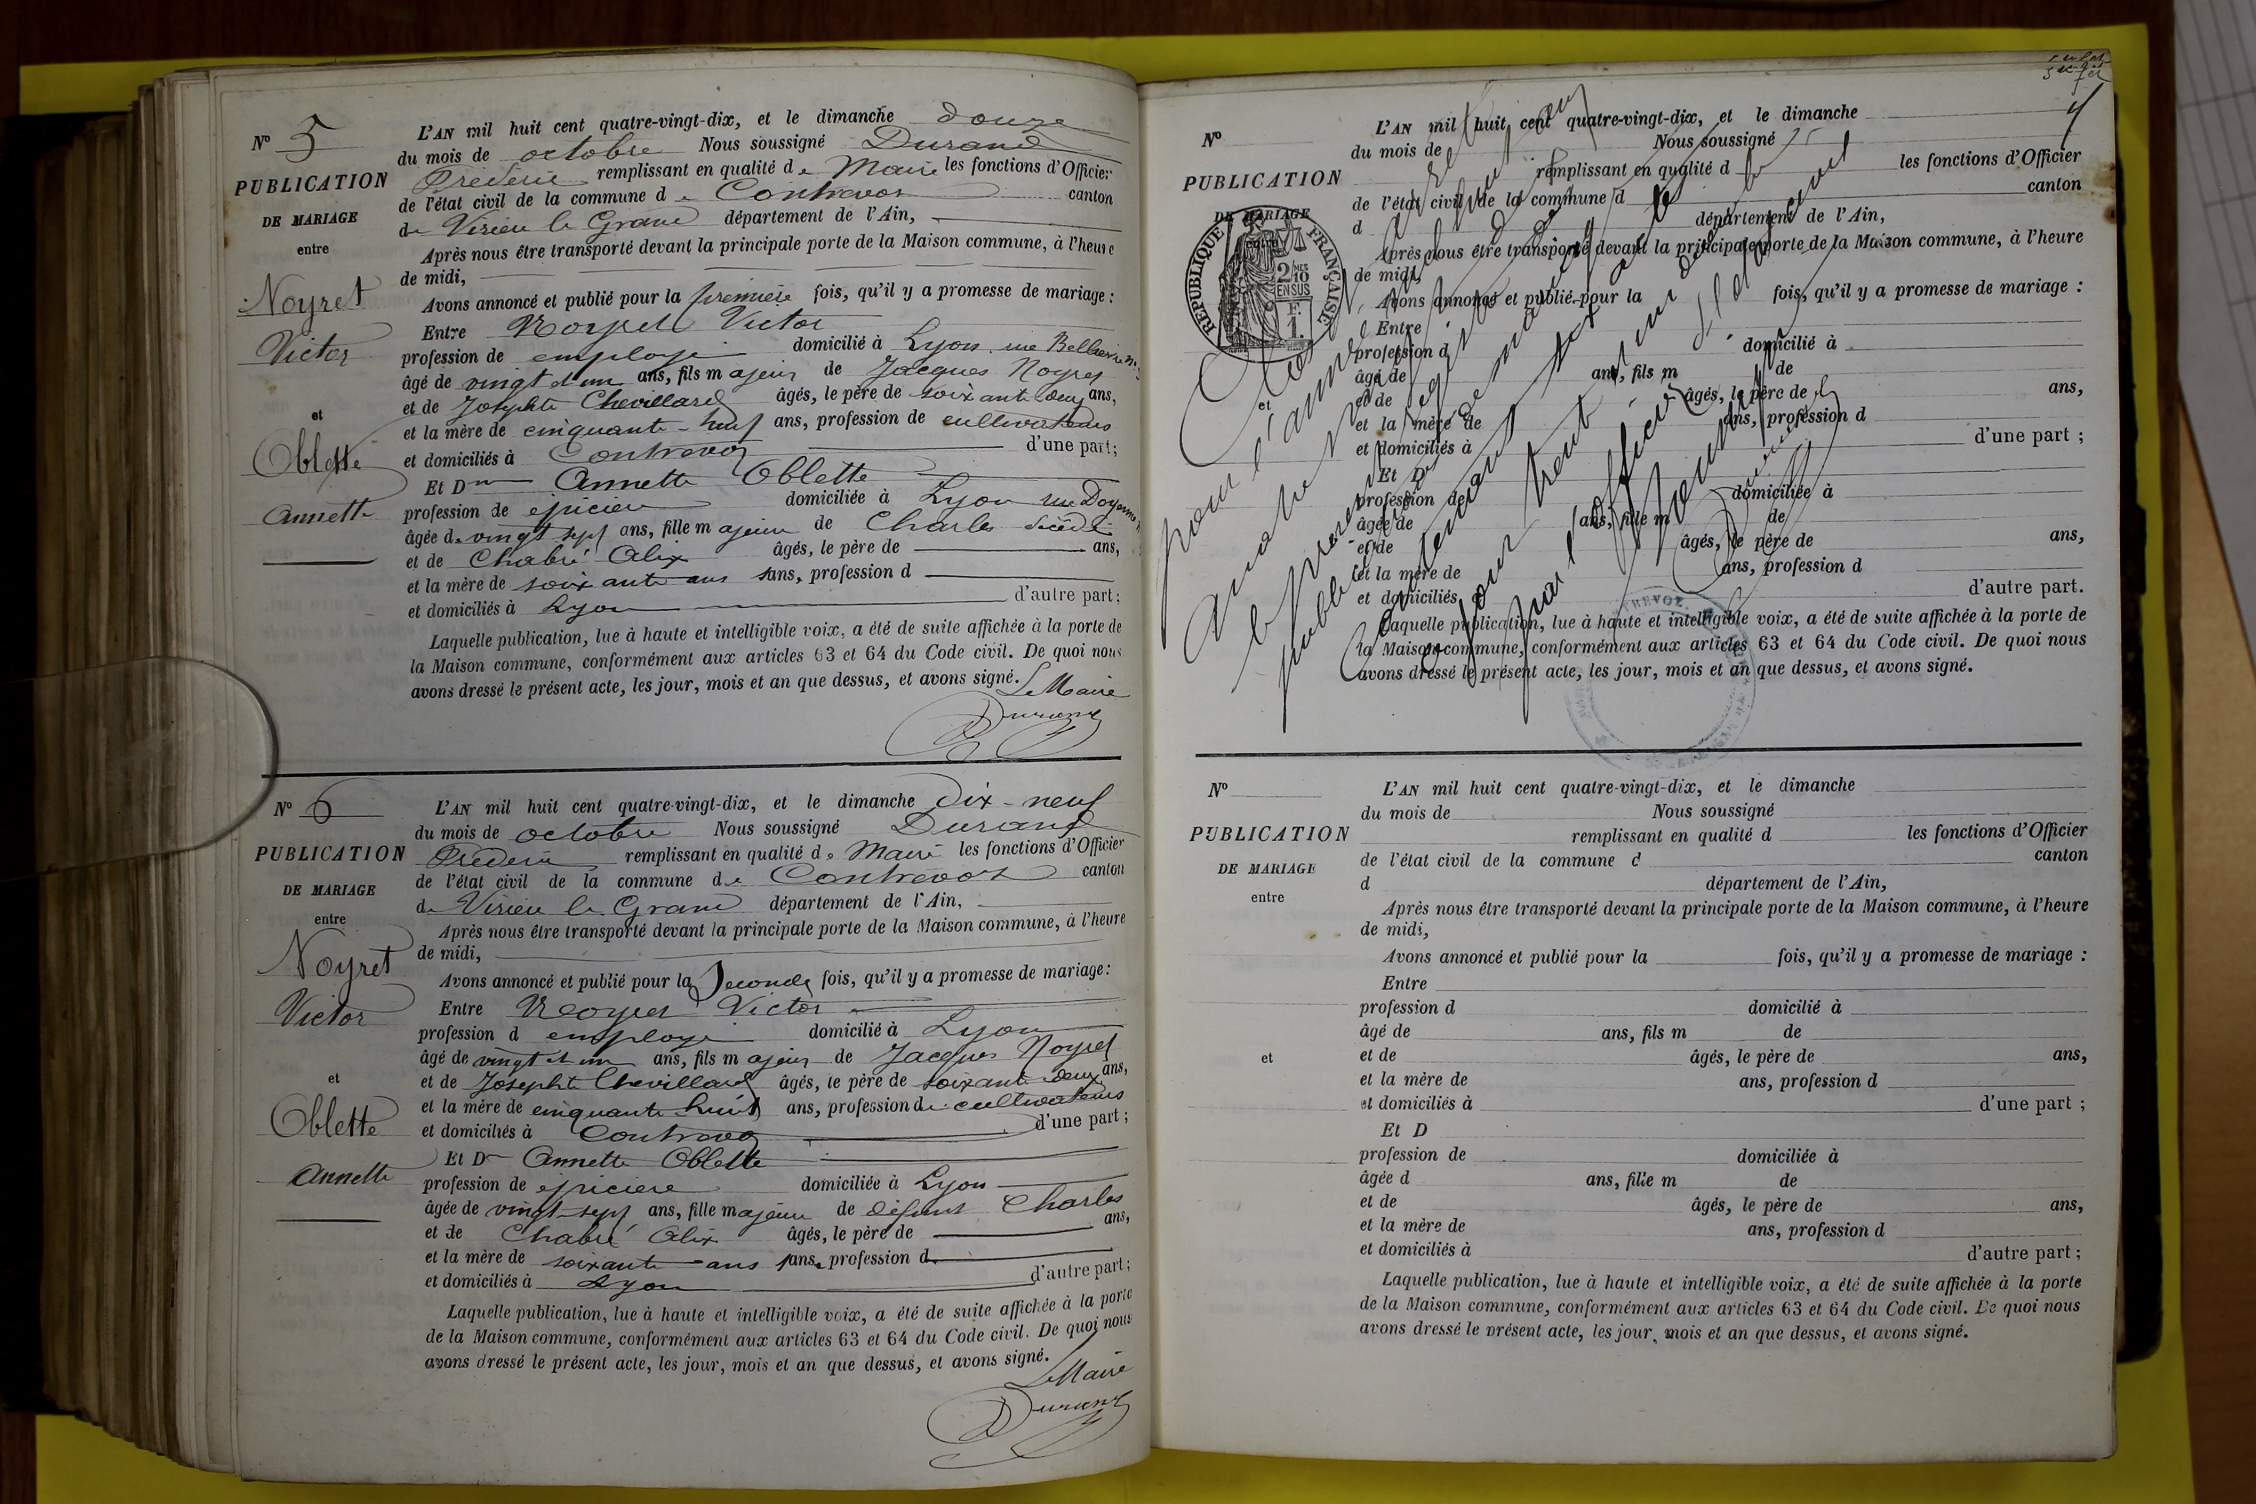 N° 5
PUBLICATION
DE MARIAGE
entre
Noyret
Victor
et
Oblette
Annette
L'AN mil huit cent quatre-vingt-dix, et le dimanche douze
du mois de octobre Nous soussigné Durand
Frédéric remplissant en qualité de Maire les fonctions d'Officier
de l'état civil de la commune de Contrevoz canton
de Virieu le Grand département de l'Ain,
Après nous être transporté devant la principale porte de la Maison commune, à l'heure
de midi,
Avons annoncé et publié pour la première fois, qu'il y a promesse de mariage :
Entre Noyret Victor
profession de employé domicilié à Lyon rue
âgé de vingt et un ans, fils majeur de Jacques Noyret
et de Josephte Chevillard âgés, le père de soixante deux ans,
et la mère de cinquante-huit ans, profession de cultivateurs
et domiciliés à Contrevoz d'une part;
Et Dlle Annette Oblette
profession de épicière domiciliée à Lyon rue
âgée de vingt sept ans, fille majeure de Charles décédé
et de Chabré Alix âgés, le père de ans,
et la mère de soixante ans ans, profession d
et domiciliés à Lyon d'autre part;
Laquelle publication, lue à haute et intelligible voix, a été de suite affichée à la porte de
la Maison commune, conformément aux articles 63 et 64 du Code civil. De quoi nous
avons dressé le présent acte, les jour, mois et an que dessus, et avons signé.
Le Maire
Durand
N° 6
PUBLICATION
DE MARIAGE
entre
Noyret
Victor
et
Oblette
Annette
L'AN mil huit cent quatre-vingt-dix, et le dimanche dix-neuf
du mois de octobre Nous soussigné Durand
Frédéric remplissant en qualité de Maire les fonctions d'Officier
de l'état civil de la commune de Contrevoz canton
de Virieu le Grand département de l'Ain,
Après nous être transporté devant la principale porte de la Maison commune, à l'heure
de midi,
Avons annoncé et publié pour la Seconde fois, qu'il y a promesse de mariage:
Entre Noyret Victor
profession d employé domicilié à Lyon
âgé de vingt et un ans, fils majeur de Jacques Noyret
et de Josephte Chevillard âgés, le père de soixante deux ans,
et la mère de cinquante huit ans, profession de cultivateurs
et domiciliés à Contrevoz d'une part;
Et Dlle Annette Oblette
profession de épicière domiciliée à Lyon
âgée de vingt-sept ans, fille majeure de défunt Charles
et de Chabré Alix âgés, le père de ans,
et la mère de soixante ans ans, profession d
et domiciliés à Lyon d'autre part;
Laquelle publication, lue à haute et intelligible voix, a été de suite affichée à la porte
de la Maison commune, conformément aux articles 63 et 64 du Code civil. De quoi nous
avons dressé le présent acte, les jour, mois et an que dessus, et avons signé.
Le Maire
Durand
N°
PUBLICATION
DE MARIAGE
RÉPUBLIQUE FRANÇAISE
2/10 EN SUS
F. 1
et
L'AN mil huit cent quatre-vingt-dix, et le dimanche
du mois de Nous soussigné
remplissant en qualité d les fonctions d'Officier
de l'état civil de la commune d canton
d département de l'Ain,
Après nous être transporté devant la principale porte de la Maison commune, à l'heure
de midi,
Avons annoncé et publié pour la fois, qu'il y a promesse de mariage :
Entre
profession d domicilié à
âgé de ans, fils m de
et de âgés, le père de ans,
et la mère de ans, profession d
et domiciliés à d'une part ;
Et D
profession de domiciliée à
âgée de ans, fille m de
et de âgés, le père de ans,
et la mère de ans, profession d
et domiciliés à d'autre part.
Laquelle publication, lue à haute et intelligible voix, a été de suite affichée à la porte de
la Maison commune, conformément aux articles 63 et 64 du Code civil. De quoi nous
avons dressé le présent acte, les jour, mois et an que dessus, et avons signé.
N°
PUBLICATION
DE MARIAGE
entre
et
L'AN mil huit cent quatre-vingt-dix, et le dimanche
du mois de Nous soussigné
remplissant en qualité d les fonctions d'Officier
de l'état civil de la commune d canton
d département de l'Ain,
Après nous être transporté devant la principale porte de la Maison commune, à l'heure
de midi,
Avons annoncé et publié pour la fois, qu'il y a promesse de mariage :
Entre
profession d domicilié à
âgé de ans, fils m de
et de âgés, le père de ans,
et la mère de ans, profession d
et domiciliés à d'une part ;
Et D
profession de domiciliée à
âgée d ans, fille m de
et de âgés, le père de ans,
et la mère de ans, profession d
et domiciliés à d'autre part ;
Laquelle publication, lue à haute et intelligible voix, a été de suite affichée à la porte
de la Maison commune, conformément aux articles 63 et 64 du Code civil. De quoi nous
avons dressé le présent acte, les jour, mois et an que dessus, et avons signé.